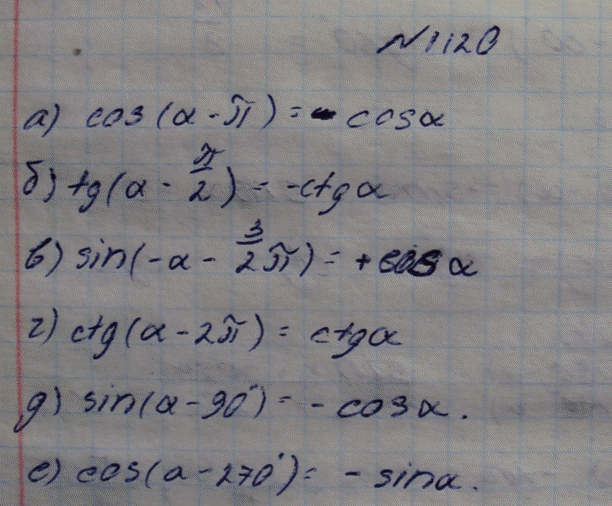 №1120
а) cos(α - π) = - cosα
б) tg(α - π/2) = -ctgα
в) sin(-α - 3/2π) = +cosα
г) ctg(α - 2π) = ctgα
д) sin(α - 90°) = - cosα.
е) cos(α - 270°) = - sinα.